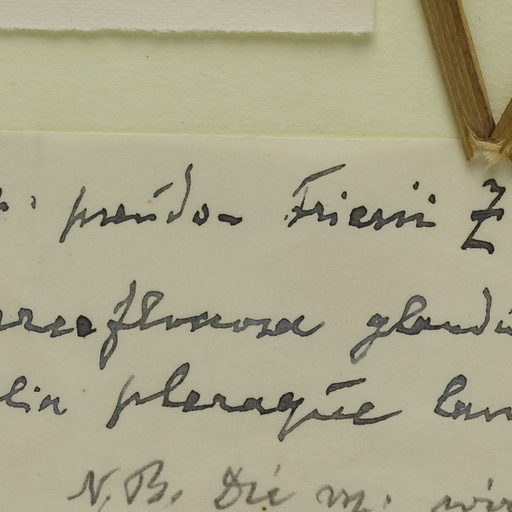 pseudo- Friesii Z
floccosa glandu
lia pleraque lan
N.B. Die m. wir